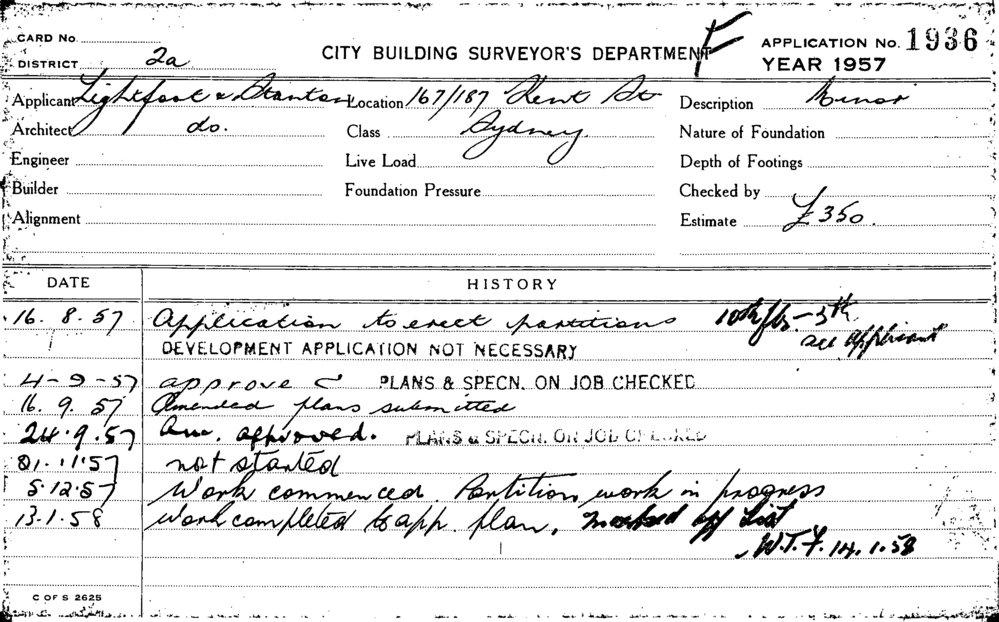 CARD No.
DISTRICT 2a
CITY BUILDING SURVEYOR'S DEPARTMENT
APPLICATION No. 1936
YEAR 1957
Applicant Lightfoot & Stanton Location 167/187 Kent St Description Minor
Architect do. Class Sydney. Nature of Foundation
Engineer Live Load Depth of Footings
Builder Foundation Pressure Checked by
Alignment Estimate £350.
DATE HISTORY
16. 8. 57 Application to erect partitions
see applicant
DEVELOPMENT APPLICATION NOT NECESSARY
4-9-57 approve PLANS & SPECN. ON JOB CHECKED
16. 9. 57 Amended plans submitted
24.9.57 Am. approved. PLANS & SPECN. ON JOB CHECKED
21.11.57 not started
5.12.57 Work commenced. Partition work in progress
13.1.58 Work completed to app. plan. marked off List
W.T.F. 14.1.58
C OF S 2625